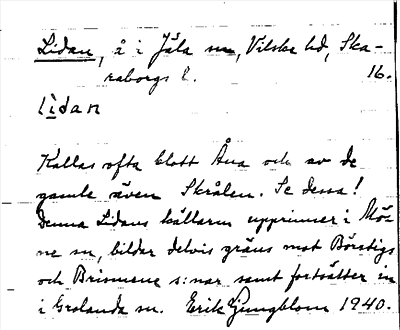 Lidan, å i Jäla sn, Vilske hd, Ska-
raborgs l. 16.
lìdan
Kallas ofta blott Åna och av de
gamle även Skrålen. Se dessa!
Denna Lidans källarm upprinner i Mön-
ne sn, bilder delvis gräns mot Börstigs
och Brismene s:nar samt fortsätter in
i Grolanda sn. Erik Ljungblom 1940.